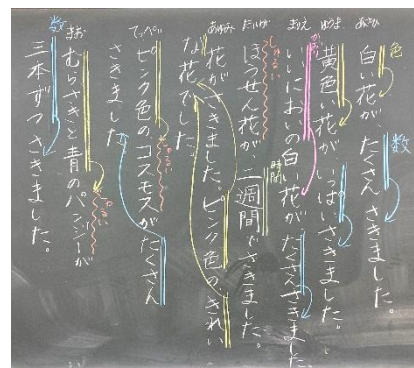 色
数
白い花が、たくさんさきました。
ゆうま
黄色い花が、いっぱいさきました。
まりえ
いいにおいの白い花が、たくさんさきました。
しゅるい
時間
ほうせん花が、二週間でさきました。
あゆみ
花がさきました。ピンク色のきれい
な花でした。
てっぺい
ピンク色のコスモスがたくさん
さきました。
むらさきと青のパンジーが
数
三本ずつさきました。